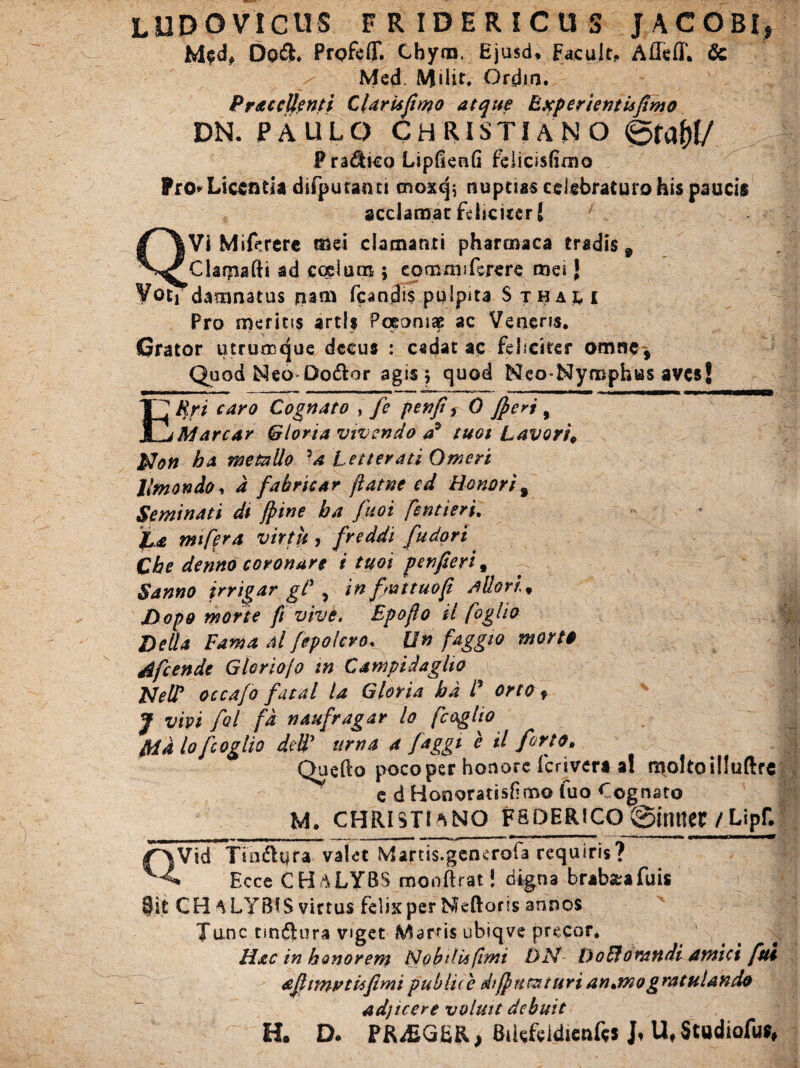 LUDOVICUS FRIDERICUS JACOBI,
Med. Doct. Profess. Chym. Ejusd. Facult. Assess. &
Med. Milit. Ordin.
Præcellenti Clarisſimo atque Experientisſimo
DN. PAULO CHRISTIANO Stahl/
Practico Lipſienſi felicisſimo
Pro Licentia diſputanti moxq; nuptias celebraturo his paucis
acclamat feliciter!
QVi Miſerere mei clamanti pharmaca tradis,
Clamaſti ad cœlum; commiſerere mei!
Voti damnatus nam ſcandis pulpita STHALI
Pro meritis artis Pœoniæ ac Veneris.
Grator utrumque decus: cadat ac feliciter omne,
Quod Neo-Doctor agis; quod Neo-Nymphus aves!
ERri caro Cognato, ſe penſi, O ſperi,
Marcar Gloria vivendo a' tuoi Lavori.
Non ha metallo 'a Letterati Omeri
Ilmondo, à fabricar ſtatne ed Honori,
Seminati di ſpine ha ſuoi ſentieri.
La miſera virtù, freddi ſudori
Che denno coronare i tuoi penſieri,
Sanno irrigar gl', infruttuoſi Allori.
Dopo morte ſi vive. Epoſto il ſoglio
Della Fama al ſepolcro. Un ſaggio morto
Aſcende Glorioſo in Campidaglio
Nell' occaſo fatal la Gloria hà l' orto,
J vivi ſol fà naufragar lo ſcoglio
Mà lo ſcoglio dell' urna a ſaggi è il ſorto.
Queſto poco per honore ſcrivera al molto illuſtre
e d Honoratisſimo ſuo Cognato
M. CHRISTIANO FEDERICO Sinner / Lipſ.
QVid Tinctura valet Martis.generoſa requiris?
Ecce CHALYBS monſtrat! digna brabæa ſuis
Sit CHALYBIS virtus felix per Neſtoris annos
Tunc tinctura viget Martis ubiqve precor.
Hæc in honorem Nobilisſimi DN Doctorandi amici ſui
æſtimatisſimi publicè diſputaturi an.mo gratulando
adjicere voluit debuit
H. D. PRÆGER, Bilefeldienſis J. U. Studioſus,